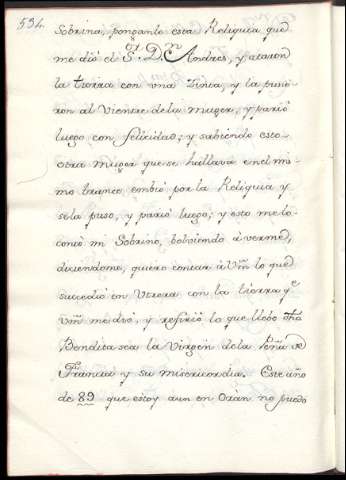 534
Sobrina, ponganle esta Reliquia que
me dió el Sr. Dn. Andres, y ataron
la tierra con una Zinta, y la pusie-
ron al Vientre dela muger, y parió
luego con felicidad; y sabiendo esto
otra muger que se hallava en el mis-
mo trance embió por la Reliquia y
sela puso, y parió luego; y esto melo
contó mi Sobrino, bolviendo à verme,
diciendome, quiero contar à Vm̃ lo que
sucedió en Utrera con la tierra qe
Vm̃ me dió, y refirió lo que llebo dho
Bendita sea la Virgen dela Peña de
Francia y su misericordia. Este año
de 89 que estoy aun en Orán no puedo